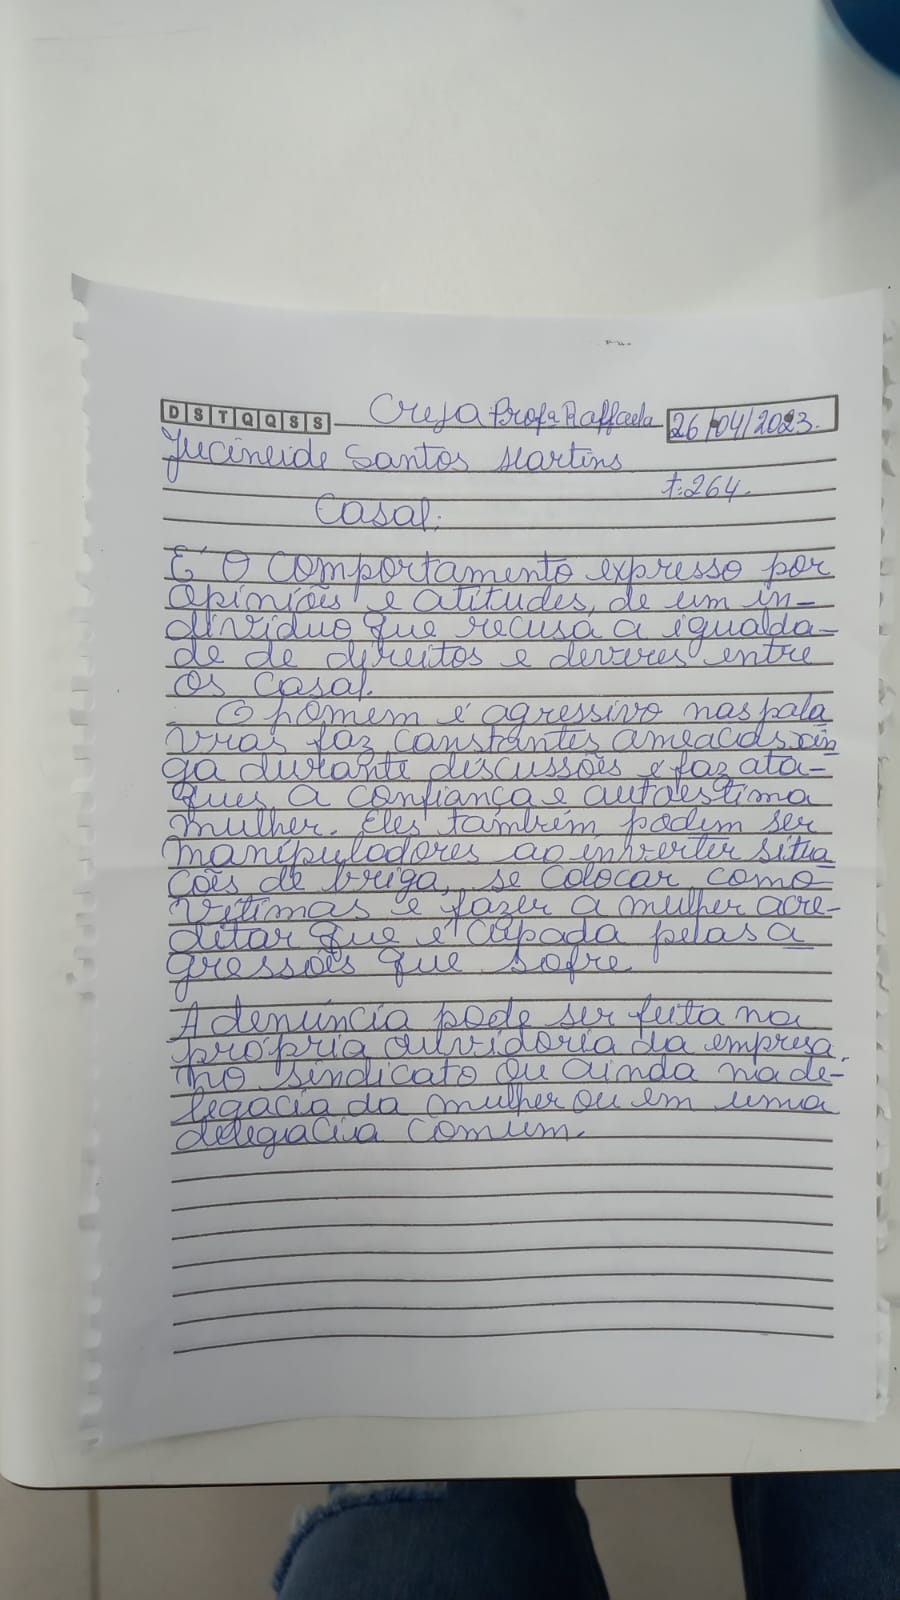 D S T Q Q S S Creja Profª Raffaela 26/04/2023.
Jucineide Santos Martins
t:264.
Casal:
É o comportamento expresso por
opiniões e atitudes, de um in-
divíduo que recusa a igualda-
de de direitos e deveres entre
os casal.
O homem é agressivo nas pala
vras faz constantes ameacas xin
ga durante discussões e faz ata-
ques a confiança e autoestima
mulher. Eles também podem ser
manipuladores ao inverter situa
ções de briga, se colocar como
vítimas e fazer a mulher acre-
ditar que é cupada pelas a
gressões que sofre.
A denúncia pode ser feita na
própria ouvidoria da empresa,
no sindicato ou ainda na de-
legacia da mulher ou em uma
delegacia comum.